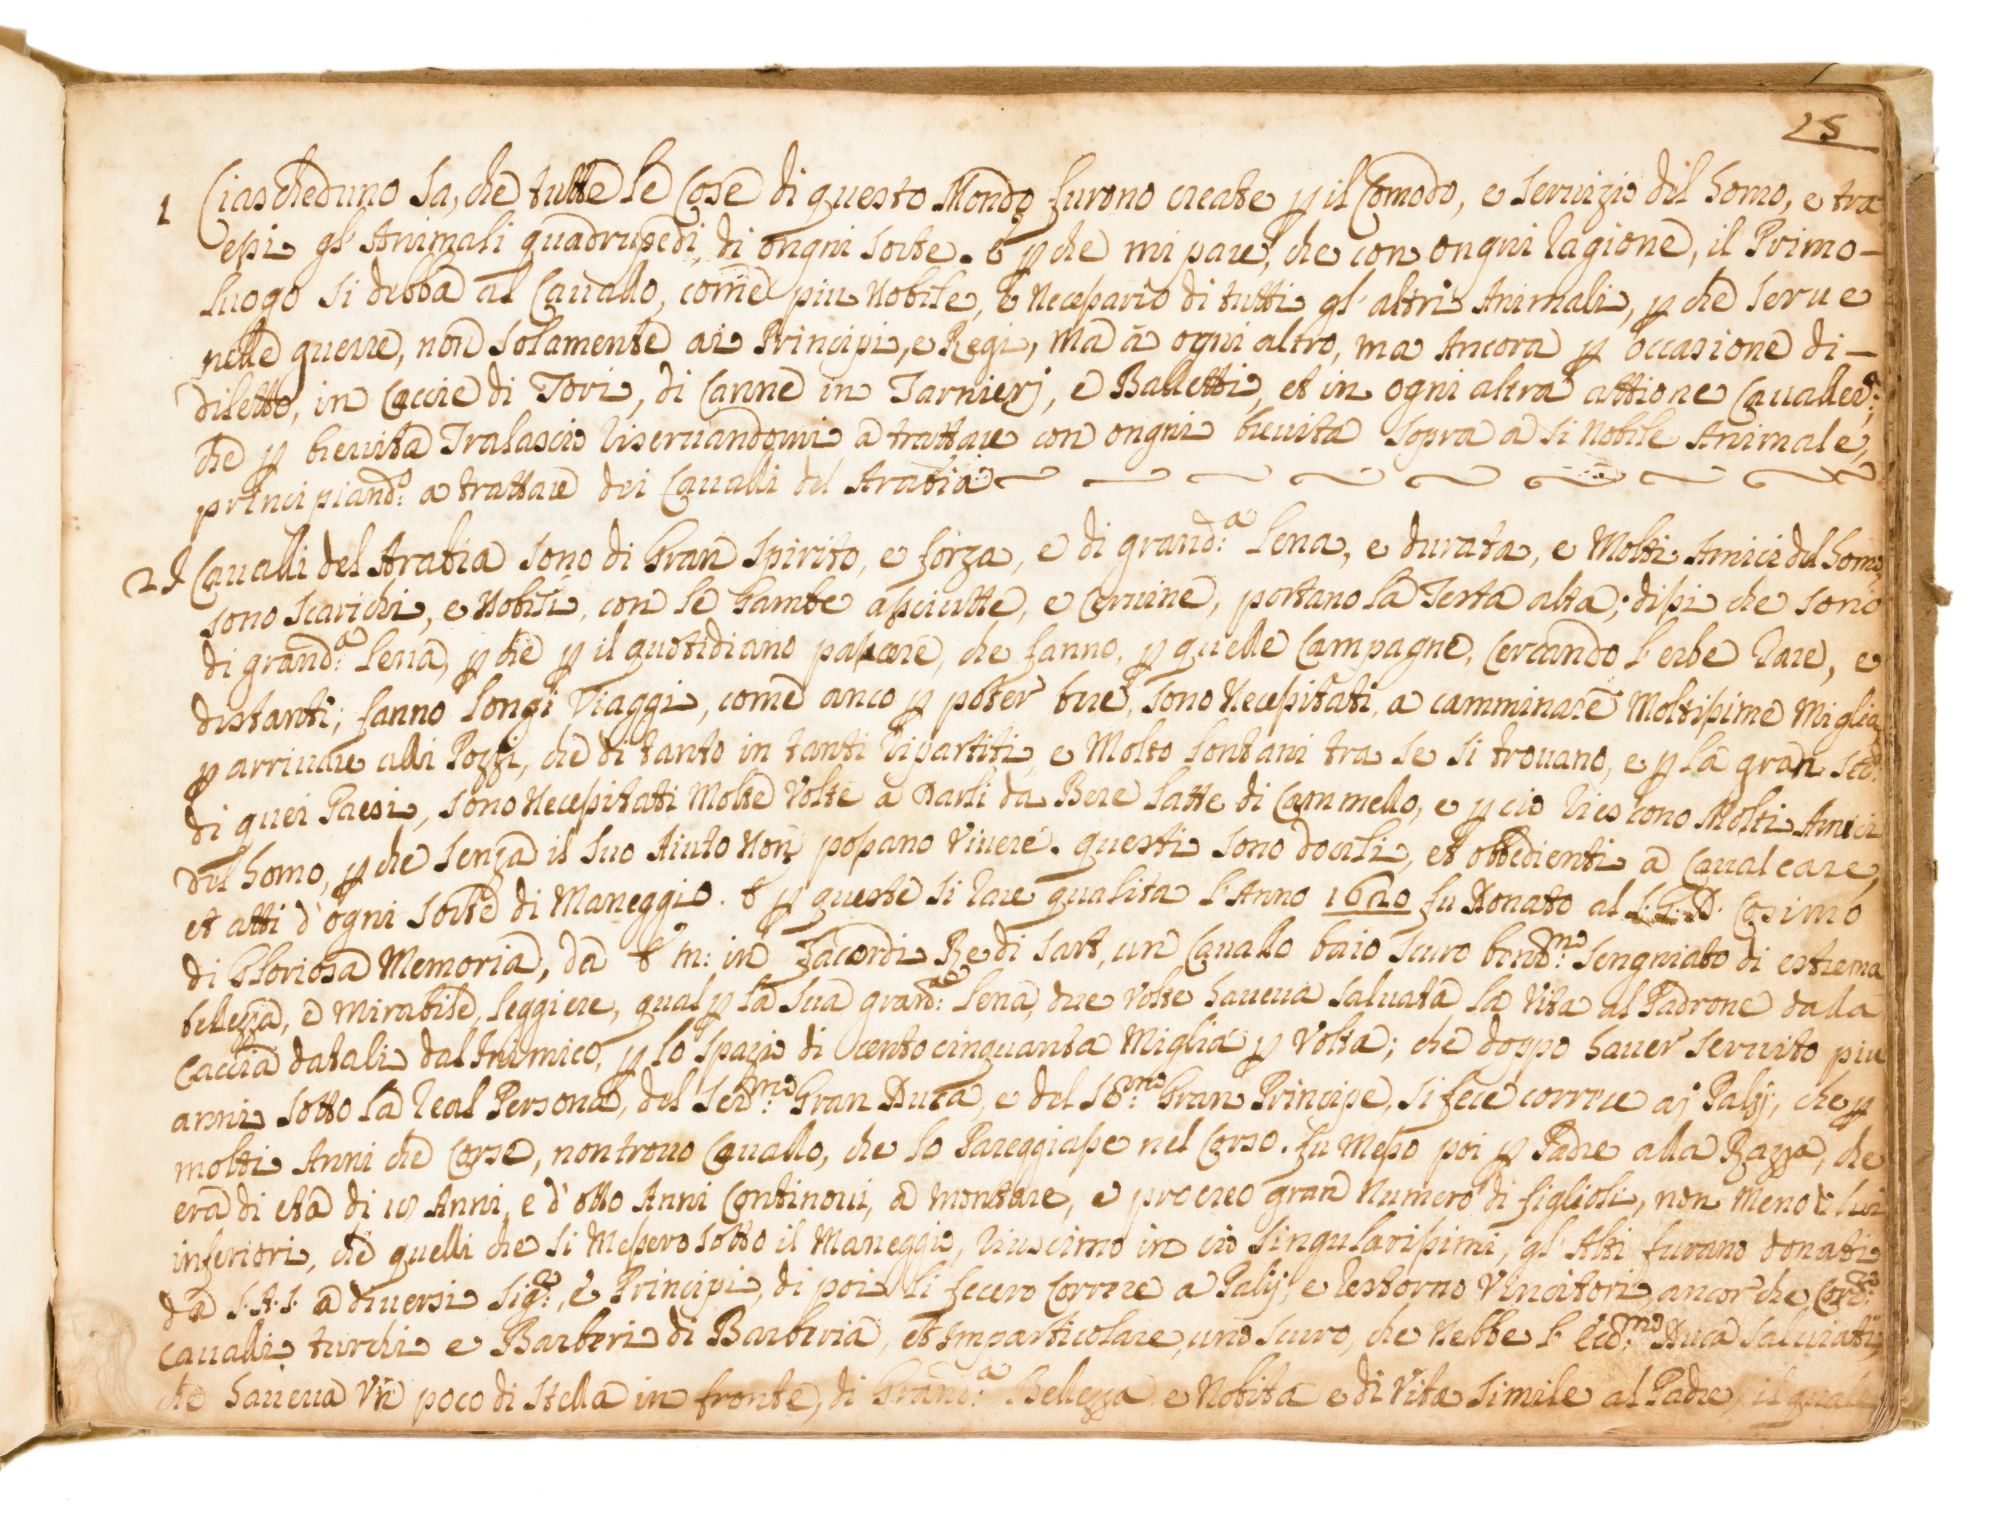 25
1 Ciascheduno sa, che tutte le Cose di questo Mondo furono create p il Comodo, e servizio del homo, e tra
essi gl' Animali quadrupedi, di ongni sorte. E p che mi pare, che con ongni ragione, il Primo-
luogo si debba al Cavallo, come piu Nobile, e Necessario di tutti gl' altri Animali, p che serve
nelle guerre, non solamente ai Principi, e Regi, Ma à ogni altro, ma Ancora p occasione di-
diletto, in Caccie di Tori, di Canne in Tarnierj, e Balletti, et in ogni altra attione
che p brevita Tralascio riservandomi a trattare con ongni brevita sopra a si Nobile Animale,
principiand:o a trattare dei Cavalli del Arabia
2 I Cavalli del Arabia sono di Gran spirito, e forza, e di grand:a lena, e durata, e Molti Amici del homo,
sono scarichi, e Nobili, con le Gambe asciutte, e Cervine, portano la Testa alta; dissi che sono
di grand:a lena, p che p il quotidiano pascere, che fanno, p quelle Campagne, Cercando l' erbe rare, e
distanti; fanno longi Viaggi, come anco p poter bere, sono Necessitati, a camminare Moltissime Miglia
p arrivare alli Pozzi, che di tanto in tanti ripartiti, e Molto lontani tra se si trovano, e p la gran
di quei Paesi, sono Necessitatti Molte Volte a Darli da Bere latte di Cammello, e p cio riescono Molti Amici
del homo, p che senza il suo Aiuto Non possano Vivere. questi sono docili, et obbedienti a Cavalcare,
et atti d' ogni sorte di Maneggio. E p queste si rare qualita l' Anno 1620 fu Donato al S. G. D. Cosimo
di Gloriosa Memoria, da in Facordi Re di sart, un Cavallo baio scuro sengniato di estrema
bellezza, e Mirabile, leggiere, qual p la sua lena, due Volte haveva salvata la Vita al Padrone dalla
Caccia datali dal Inimico, p lo spazi di cento cinquanta Miglia p Volta; che doppo haver servito piu
anni sotto la real Persona, del Ser:mo Gran Duca, e del Gran Principe, si fece correre aj Palij, che p
molti Anni che Corse, non trovo Cavallo, che lo Pareggiasse nel Corso. fu Messo poi p Padre alla Razza, che
era di eta di Anni, e d' otto Anni Continovi, a montare, e procreo gran Numero di figlioli, non Meno di lui
inferiori, che quelli che si Messero sotto il Maneggio, riuscirno in cio singularissimi, gl' Alti furano donati
da S. A. S. a diversi e Principi, di poi li fecero Correre a Palij, e restorno Vincitori, ancor che
cavalli turchi e Barberi di Barberia, et Imparticolare, uno scuro, che Nebbe l' Duca Salviati,
che haveva Un poco di stella in fronte, di Grand:a Bellezza e Nobita e di Vita simile al Padre, il quale